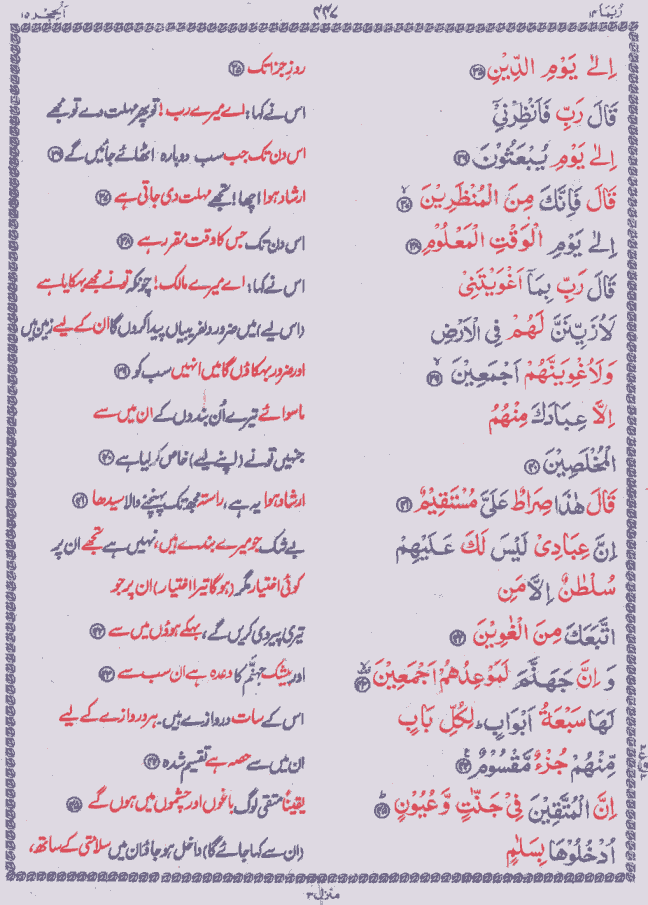 رُبَمَا ۱۴ ۳۳۷ اَلْحِجْر ۱۵
اِلٰى يَوْمِ الدِّيْنِ ﴿۳۵﴾ روزِ جزا تک ﴿۳۵﴾
قَالَ رَبِّ فَاَنْظِرْنِيْٓ اس نے کہا: اے میرے رب! تو پھر مہلت دے تو مجھے
اِلٰى يَوْمِ يُبْعَثُوْنَ ﴿۳۶﴾ اس دن تک جب سب دوبارہ اٹھائے جائیں گے ﴿۳۶﴾
قَالَ فَاِنَّكَ مِنَ الْمُنْظَرِيْنَ ﴿۳۷﴾ ارشاد ہوا اچھا! تجھے مہلت دی جاتی ہے ﴿۳۷﴾
اِلٰى يَوْمِ الْوَقْتِ الْمَعْلُوْمِ ﴿۳۸﴾ اس دن تک جس کا وقت مقرر ہے ﴿۳۸﴾
قَالَ رَبِّ بِمَآ اَغْوَيْتَنِيْ اس نے کہا: اے میرے مالک! چونکہ تو نے مجھے بہکایا ہے
لَاُزَيِّنَنَّ لَهُمْ فِى الْاَرْضِ (اس لیے) میں ضرور دلفریبیاں پیدا کروں گا ان کے لیے زمین میں
وَلَاُغْوِيَنَّهُمْ اَجْمَعِيْنَ ﴿۳۹﴾ اور ضرور بہکاؤں گا میں انہیں سب کو ﴿۳۹﴾
اِلَّا عِبَادَكَ مِنْهُمُ ماسوائے تیرے اُن بندوں کے ان میں سے
الْمُخْلَصِيْنَ ﴿۴۰﴾ جنہیں تو نے (اپنے لیے) خاص کر لیا ہے ﴿۴۰﴾
قَالَ هٰذَا صِرَاطٌ عَلَيَّ مُسْتَقِيْمٌ ﴿۴۱﴾ ارشاد ہوا یہ ہے، راستہ مجھ تک پہنچنے والا سیدھا ﴿۴۱﴾
اِنَّ عِبَادِيْ لَيْسَ لَكَ عَلَيْهِمْ بے شک جو میرے بندے ہیں، نہیں ہے تجھے ان پر
سُلْطٰنٌ اِلَّا مَنِ کوئی اختیار مگر (ہوگا تیرا اختیار) ان پر جو
اتَّبَعَكَ مِنَ الْغٰوِيْنَ ﴿۴۲﴾ تیری پیروی کریں گے، بہکے ہوؤں میں سے ﴿۴۲﴾
وَ اِنَّ جَهَنَّمَ لَمَوْعِدُهُمْ اَجْمَعِيْنَ ﴿۴۳﴾ اور بیشک جہنّم کا وعدہ ہے ان سب سے ﴿۴۳﴾
لَهَا سَبْعَةُ اَبْوَابٍ ؕ لِكُلِّ بَابٍ اس کے سات دروازے ہیں۔ ہر دروازے کے لیے
مِّنْهُمْ جُزْءٌ مَّقْسُوْمٌ ﴿۴۴﴾ ان میں سے حصہ ہے تقسیم شدہ ﴿۴۴﴾
اِنَّ الْمُتَّقِيْنَ فِيْ جَنّٰتٍ وَّ عُيُوْنٍ ﴿۴۵﴾ یقیناً متقی لوگ باغوں اور چشموں میں ہوں گے ﴿۴۵﴾
اُدْخُلُوْهَا بِسَلٰمٍ (ان سے کہا جائے گا) داخل ہو جاؤ ان میں سلامتی کے ساتھ،
منزل ۳